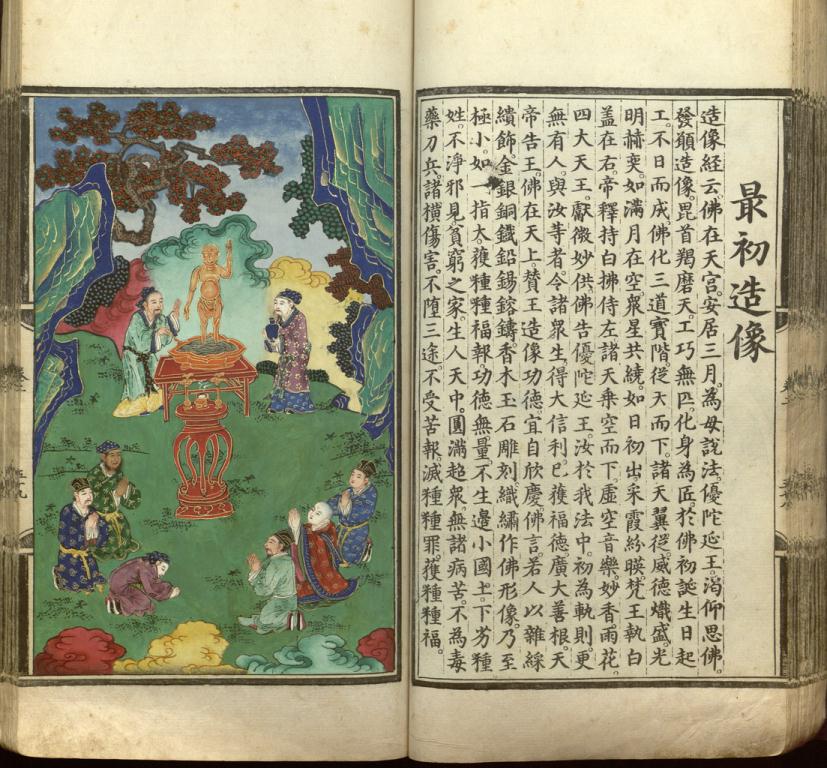 最初造像
造像經云。佛在天宮。安居三月。為母說法。優陀延王。渴仰思佛。
發願造像。毘首羯磨天。工巧無匹。化身為匠。於佛初誕生日起
工。不日而成。佛化三道寶階。從天而下。諸天翼從。威德熾盛。光
明赫奕。如滿月在空。眾星共繞。如日初出。采霞紛暎。梵王執白
盖在右。帝釋持白拂侍左。諸天乘空而下。虛空音樂。妙香雨花。
四大天王。獻微妙供。佛告優陀延王。汝於我法中。初為軌則。更
無有人。與汝等者。令諸眾生。得大信利。已獲福德。廣大善根。天
帝告王。佛在天上。賛王造像功德。宜自欣慶。佛言。若人以雜綵
繢飾。金銀銅鐵鉛錫鎔鑄。香木玉石雕刻。織繡作佛形像。乃至
極小。如一指大。獲種種福報。功德無量。不生邊小國土。下劣種
姓。不淨邪見。貧窮之家。生人天中。圓滿超眾。無諸病苦。不為毒
藥刀兵。諸橫傷害。不墮三途。不受苦報。滅種種罪。獲種種福。